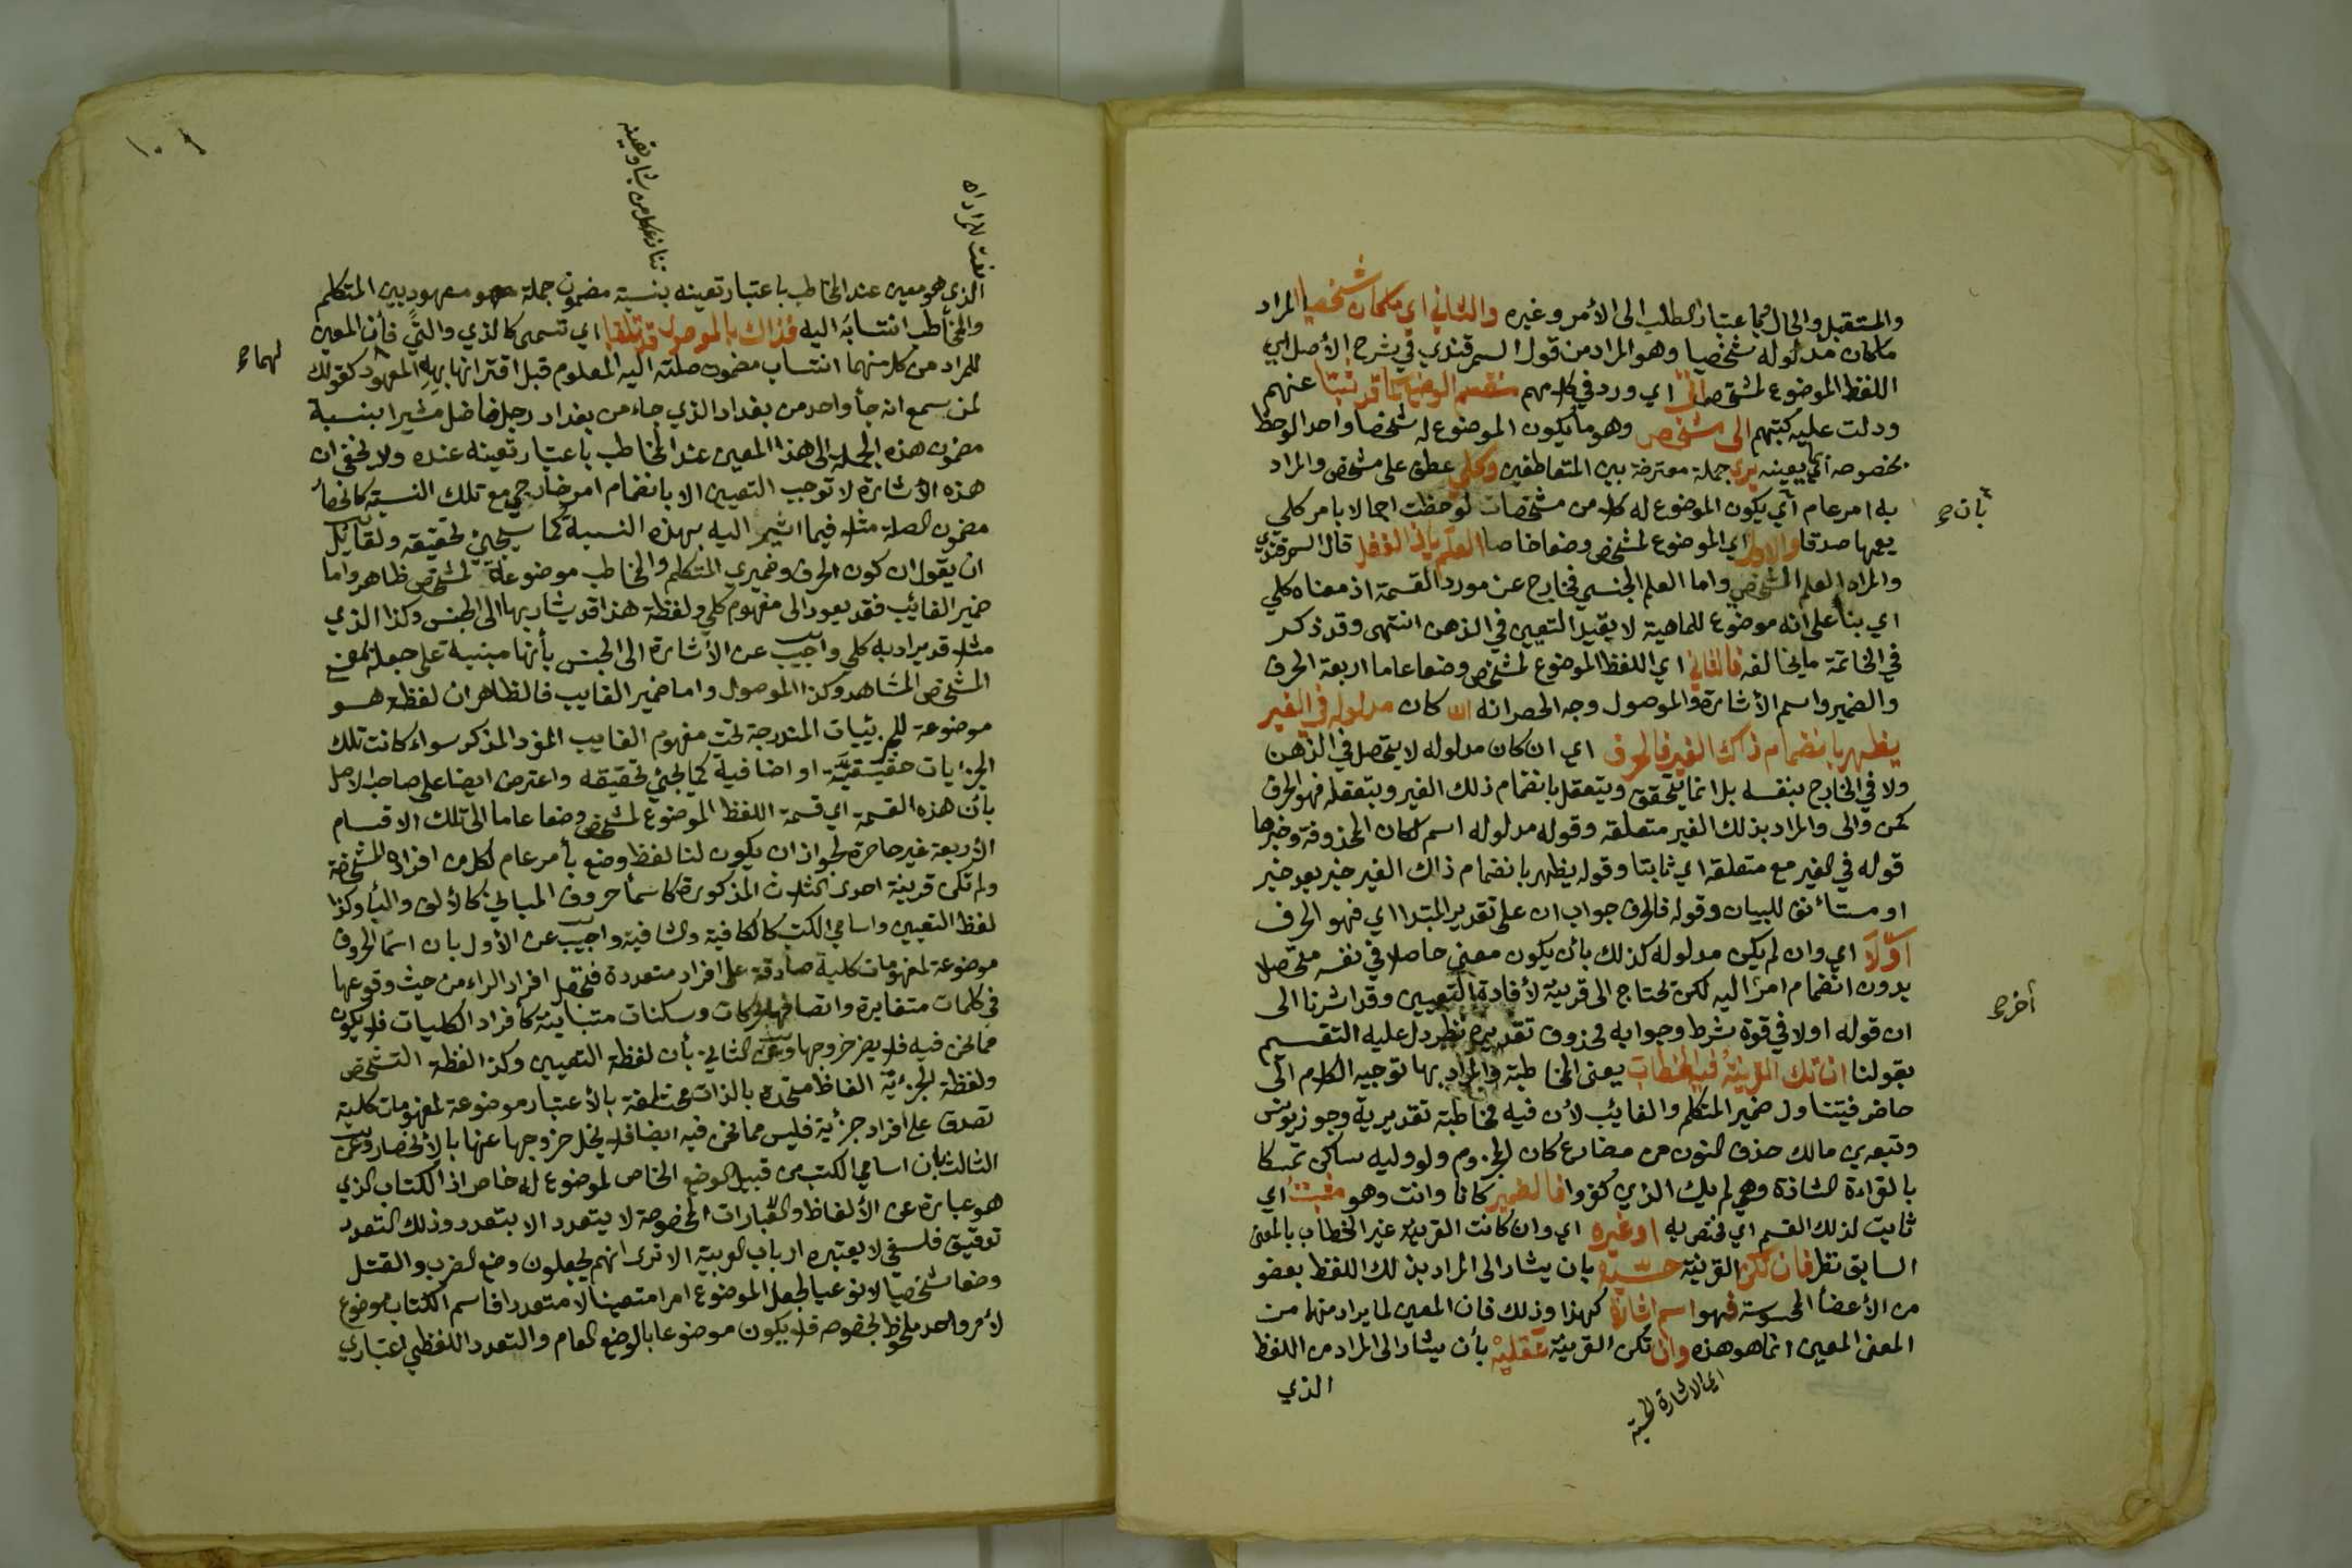 والمستقبل والحال كما عتبار الطلب الى الأمر وغيره والثاني اي ما كان شخصيا المراد
ما كان مدلوله شخصيا وهو المراد من قول السمرقندي في شرح الأصل اي
اللفظ الموضوع لمشخص اي ورد في كلامهم قد ثبتا عنهم
ودلت عليه كتبهم الى مشخص وهو ما يكون الموضوع له شخصا واحدا لوحظ
بخصوصه اي بعينه يرى جملة معترضة بين المتعاطفين وكلي عطف على مشخص والمراد
به امر عام أي يكون الموضوع له كلا من مشخصات لوحظت اجمالا بامر كلي
بان صح
يعمها صدقا والاول اي الموضوع لمشخص وضعا خاصا العلم قال السمرقندي
والمراد العلم الشخصي واما العلم الجنسي فخارج عن مورد القسمة اذ معناه كلي
اي بناء على انه موضوع للماهية لا بقيد التعين في الذهن انتهى وقد ذكر
في الخاتمة ما يخالفه فالثاني اي اللفظ الموضوع لمشخص وضعا عاما اربعة الحرف
والضمير واسم الأشارة والموصول وجه الحصر انه ان كان مدلوله في الغير
يظهر بانضمام ذاك الغير فالحرف اي ان كان مدلوله لا يتحصل في الذهن
ولا في الخارج بنفسه بل انما يتحقق ويتعقل بانضمام ذلك الغير ويتعقله فهو الحرف
كمن والى والمراد بذلك الغير متعلقه وقوله مدلوله اسم لكان المحذوفة وخبرها
قوله في الغير مع متعلقه اي ثابتا وقوله يظهر بانضمام ذاك الغير خبر بعد خبر
او مستأنف للبيان وقوله فالحرف جواب ان على تقدير المبتدا اي فهو الحرف
أولا اي وان لم يكن مدلوله كذلك بأن يكون معنى حاصلا في نفسه متحصلا
بدون انضمام امر اليه لكن تحتاج الى قرينة لأفادة التعيين وقد اشرنا الى
أخر صح
ان قوله اولا في قوة شرط وجوابه محذوف تقديره نظر دل عليه التقسيم
بقولنا ان تك القرينة فيه الخطاب يعنى المخاطبة والمراد بها توجيه الكلام الى
حاضر فيتناول ضمير المتكلم والغائب لأن فيه مخاطبة تقديرية وجوز يونس
وتبعه ابن مالك حذف النون من مضارع كان المجزوم ولو وليه ساكن تمسكا
بالقراءة الشاذة وهي لم يك الذين كفروا فالضمير كانا وانت وهو مثبت اي
ثابت لذلك القسم اي مختص به او غيره اي وان كانت القرينة غير الخطاب بالمعنى
السابق نظر فان تكن القرينة حسية بان يشار الى المراد بذلك اللفظ بعضو
من الأعضاء المحسوسة فهو اسم اشارة كهذا وذلك فان المعين لما يراد منهما من
المعنى المعين انما هو هذه وان تكن القرينة عقلية بأن يشار الى المراد من اللفظ
اي الاشارة الحسية
الذي
نعت للمراد اه
تنازعه كل من يشار وتعينه
الذي هو معين عند المخاطب باعتبار تعينه بنسبة مضمون جملة هو معهود بين المتكلم
والمخاطب انتسابه اليه فذاك بالموصول قد تلقبا اي تسمى كالذي والتي فأن المعين
للمراد من كل منهما انتساب مضمون صلته اليه المعلوم قبل اقترانها بهِ المعهود كقولك
لهما صح
لمن سمع انه جاء واحد من بغداد الذي جاء من بغداد رجل فاضل مشيرا بنسبة
مضمون هذه الجملة الى هذا المعين عند المخاطب باعتبار تعينه عنده ولا يخفى ان
هذه الأشارة لا توجب التعيين الا بانضمام امر خارجي مع تلك النسبة كانحصار
مضمون الصلة مثلا فيما اشير اليه بهذه النسبة كما سيجئ تحقيقه ولقائل
ان يقول ان كون الحرف وضميري المتكلم والمخاطب موضوعة لمشخص ظاهر واما
ضمير الغائب فقد يعود الى مفهوم كلي ولفظة هذا قد يشار بها الى الجنس وكذا الذي
مثلا قد يراد به كلي واجيب عن الأشارة الى الجنس بأنها مبنية على جعله بمعنى
المشخص المشاهد وكذا الموصول واما ضمير الغايب فالظاهر ان لفظة هو
موضوعة للجزئيات المندرجة تحت مفهوم الغايب المفرد المذكر سواء كانت تلك
الجزئيات حقيقيّة او اضافية كما يجئ تحقيقه واعترض ايضا على صاحب الاصل
بأن هذه القسمة اي قسمة اللفظ الموضوع لمشخص وضعا عاما الى تلك الاقسام
الأربعة غير حاصرة لجواز ان يكون لنا لفظ وضع بأمر عام لكل من افراده المشخصة
ولم تكن قرينة احدى الثلاث المذكورة كأسماء حروف المباني كالألف والباء وكذا
لفظ التعيين واسامي الكتب كالكافية والشافية واجيب عن الأول بان اسماء الحروف
موضوعة لمفهومات كلية صادقة على افراد متعددة افراد الراء من حيث وقوعها
في كلمات متغايرة واتصافها بحركات وسكنات متباينة كأفراد الكليات فلا يكون
مما نحن فيه فلا يضر خروجها وعن الثاني بأن لفظة التعيين وكذا لفظة التشخص
ولفظة الجزئيّة الفاظ متحدة بالذات مختلفة بالأعتبار موضوعة لمفهومات كلية
تصدق على افراد جزئية فليس مما نحن فيه ايضا فلا يخل خروجها عنها بالانحصار وعن
الثالث بان اسامي الكتب من قبيل الوضع الخاص لموضوع له خاص اذ الكتاب الذي
هو عبارة عن الألفاظ والعبارات المخصوصة لا يتعدد الا بتعدد وذلك التعدد
توقيق فلسفي لا يعتبره ارباب العربية الا ترى انهم يجعلون وضع الضرب والقتل
وضعا شخصيا لا نوعيا لجعل الموضوع امرا متعينا لا متعددا فاسم الكتاب موضوع
لأمر واحد ملحوظ بخصوصه فلا يكون موضوعا بالوضع العام والتعدد اللفظي اعتباري